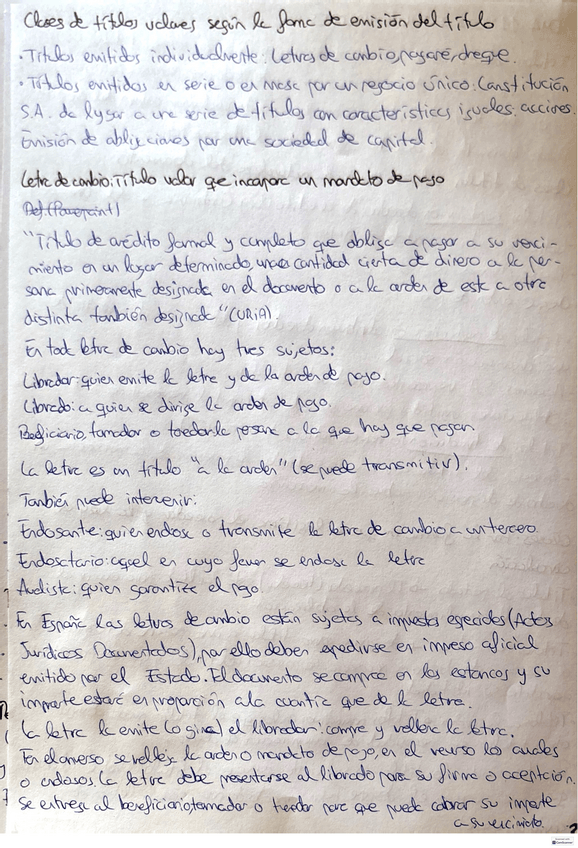 Clases de títulos valores según la forma de emisión del título
· Títulos emitidos individualmente: Letras de cambio, pagaré, cheque.
· Títulos emitidos en serie o en masa por un negocio único: Constitución
S.A. da lugar a una serie de títulos con características iguales, acciones.
Emisión de obligaciones por una sociedad de capital.
Letra de cambio: Título valor que incorpora un mandato de pago
Def (Powerpoint)
"Título de crédito formal y completo que obliga a pagar a su venci-
miento en un lugar determinado, una cantidad cierta de dinero a la per-
sona primeramente designada en el documento o a la orden de esta a otra
distinta también designada" (URIA).
En toda letra de cambio hay tres sujetos:
Librador: quien emite la letra y da la orden de pago.
Librado: a quien se dirige la orden de pago.
Beneficiario, tomador o tenedor: la persona a la que hay que pagar.
La letra es un título "a la orden" (se puede transmitir).
También puede intervenir:
Endosante: quien endosa o transmite la letra de cambio a un tercero
Endosatario: aquel en cuyo favor se endosa la letra
Avalista: quien garantiza el pago.
En España las letras de cambio están sujetas a impuestos especiales (Actos
Jurídicos Documentados), por ello deben expedirse en impreso oficial
emitido por el Estado. El documento se compra en los estancos y su
importe estará en proporción a la cuantía que de la letra.
La letra la emite (o gira) el librador: compra y rellena la letra.
En el anverso se refleja la orden o mandato de pago, en el reverso los avales
o endosos. La letra debe presentarse al librado para su firma o aceptación.
Se entrega al beneficiario, tomador o tenedor para que pueda cobrar su importe
a su vencimiento.